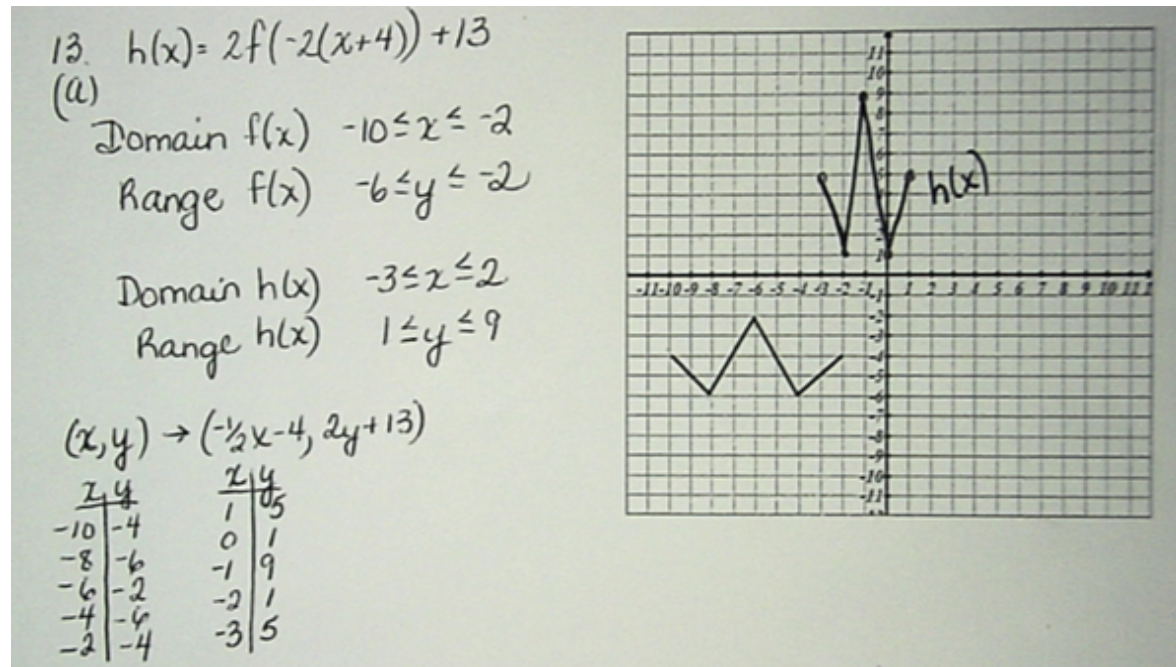 13. h(x)= 2f(-2(x+4)) +13
(a)
Domain f(x) -10≤x≤-2
Range f(x) -6≤y≤-2
Domain h(x) -3≤x≤2
Range h(x) 1≤y≤9
(x,y) → (-1/2x-4, 2y+13)
x y
-10 -4
-8 -6
-6 -2
-4 -6
-2 -4
x y
1 5
0 1
-1 9
-2 1
-3 5
h(x)
11
10
9
8
-11 -10 -9 -8 -7 -6 -5 -4 -3 -2 -1 1 2 3 4 5 6 7 8 9 10 11
-1
-2
-3
-4
-5
-6
-7
-8
-9
-10
-11